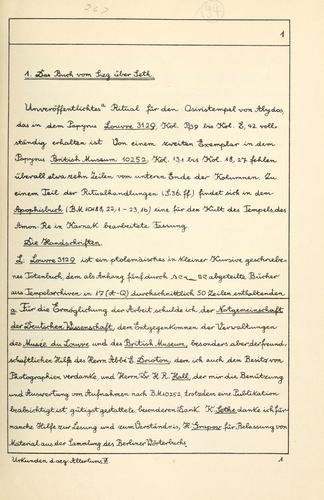 1
1. Das Buch vom Sieg über Seth.
Unveröffentlichtes Ritual für den Osiristempel von Abydos,
das in dem Papyrus Louvre 3129, Kol. B,39 bis Kol. E, 42 voll-
ständig erhalten ist. Von einem zweiten Exemplar in dem
Papyrus British Museum 10252, Kol. 13,1 bis Kol. 18, 27 fehlen
überall etwa zehn Zeilen vom untern Ende der Kolumnen. Zu
einem Teil der Ritualhandlungen (S. 36 ff.) findet sich in dem
Apophisbuch (B.M. 10188, 22,1-23,16) eine für den Kult des Tempels des
Amon-Re in Karnak bearbeitete Fassung.
Die Handschriften
L: Louvre 3129 ist ein ptolemäisches in kleiner Kursive geschriebe-
nes Totenbuch, dem als Anhang fünf durch abgeteilte Bücher
aus Tempelarchiven in 17 durchschnittlich 50 Zeilen enthaltenden
a Für die Ermöglichung der Arbeit schulde ich der Notgemeinschaft
der Deutschen Wissenschaft, dem Entgegenkommen der Verwaltungen
des Musée du Louvre und des British Museum, besonders aber der freund-
schaftlichen Hilfe des Herrn Abbé E. Drioton, dem ich auch den Besitz von
Photographien verdanke, und Herrn Dr. H. R. Hall, der mir die Benützung
und Auswertung von Aufnahmen nach B.M. 10252, trotzdem eine Publikation
beabsichtigt ist, gütigst gestattete, besonderen Dank. K. Sethe danke ich für
manche Hilfe zur Lesung und zum Verständnis, H. Grapow für Belassung von
Material aus der Sammlung des Berliner Wörterbuchs.
Urkunden d. aeg. Altertums 1